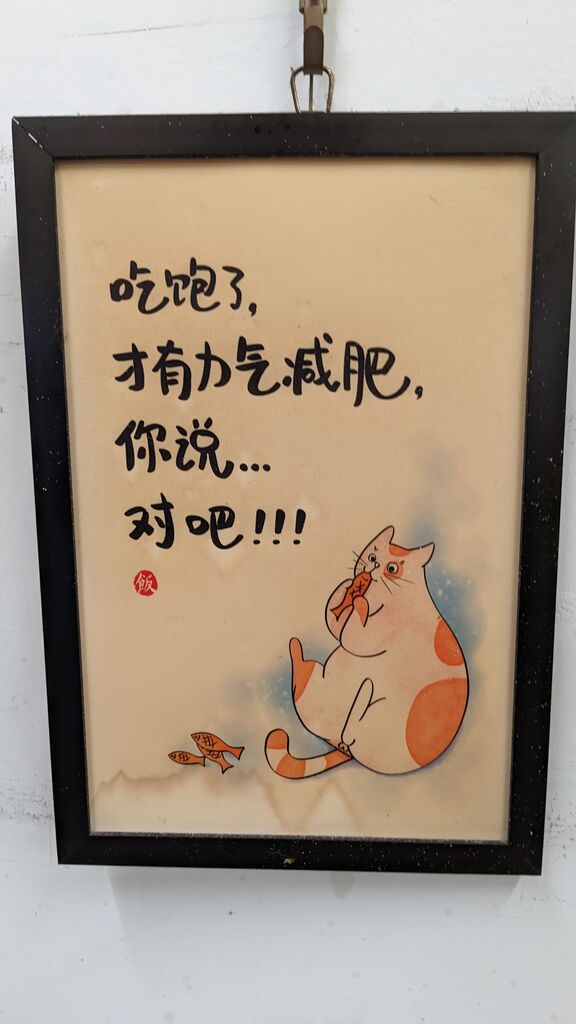 吃饱了,
才有力气减肥,
你说...
对吧!!!
飯